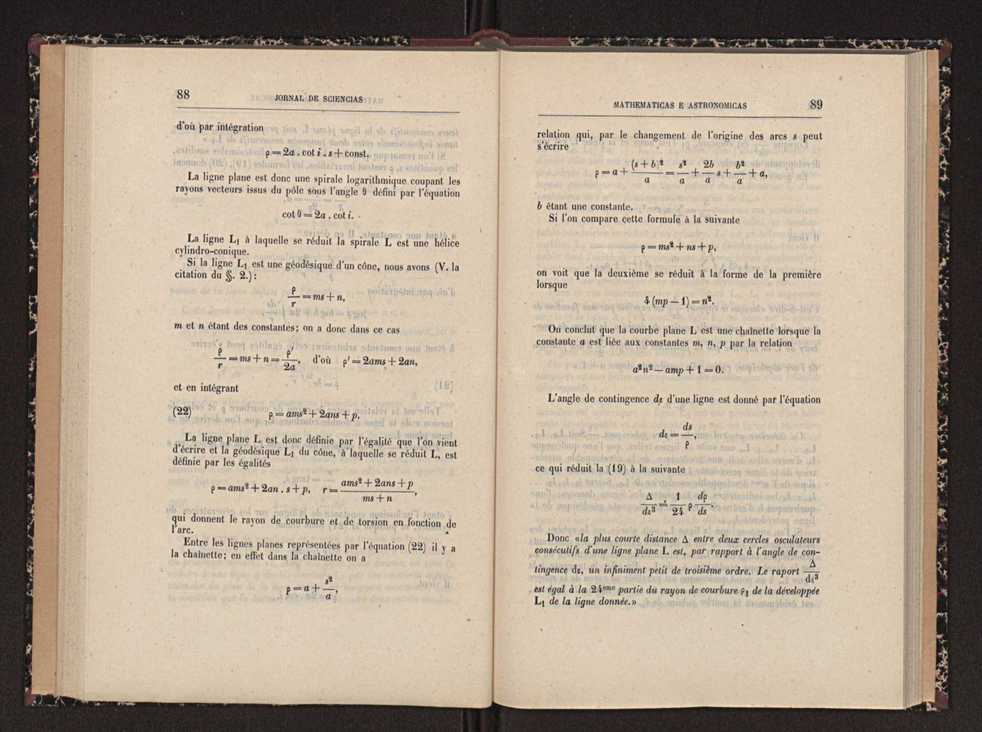 88 JORNAL DE SCIENCIAS
d'où par intégration
ρ = 2a . cot i . s + const.
La ligne plane est donc une spirale logarithmique coupant les
rayons vecteurs issus du pôle sous l'angle θ défini par l'équation
cot θ = 2a . cot i.
La ligne L₁ à laquelle se réduit la spirale L est une hélice
cylindro-conique.
Si la ligne L₁ est une géodésique d'un cône, nous avons (V. la
citation du §. 2.):
ρ/r = ms + n,
m et n étant des constantes; on a donc dans ce cas
ρ/r = ms + n = ρ'/2a, d'où ρ' = 2ams + 2an,
et en intégrant
(22) ρ = ams² + 2ans + p.
La ligne plane L est donc définie par l'égalité que l'on vient
d'écrire et la géodésique L₁ du cône, à laquelle se réduit L, est
définie par les égalités
ρ = ams² + 2an . s + p, r = (ams² + 2ans + p)/(ms + n),
qui donnent le rayon de courbure et de torsion en fonction de
l'arc.
Entre les lignes planes représentées par l'équation (22) il y a
la chaînette; en effet dans la chaînette on a
ρ = a + s²/a,
MATHEMATICAS E ASTRONOMICAS 89
relation qui, par le changement de l'origine des arcs s peut
s'écrire
ρ = a + (s + b)²/a = s²/a + 2b/a s + b²/a + a,
b étant une constante.
Si l'on compare cette formule à la suivante
ρ = ms² + ns + p,
on voit que la deuxième se réduit à la forme de la première
lorsque
4 (mp — 1) = n².
On conclut que la courbe plane L est une chaînette lorsque la
constante a est liée aux constantes m, n, p par la relation
a²n² — amp + 1 = 0.
L'angle de contingence dε d'une ligne est donné par l'équation
dε = ds/ρ,
ce qui réduit la (19) à la suivante
Δ/dε³ = 1/24 ρ dρ/ds.
Donc «la plus courte distance Δ entre deux cercles osculateurs
consécutifs d'une ligne plane L est, par rapport à l'angle de con-
tingence dε, un infiniment petit de troisième ordre. Le raport Δ/dε³
est égal à la 24ème partie du rayon de courbure ρ₁ de la développée
L₁ de la ligne donnée.»